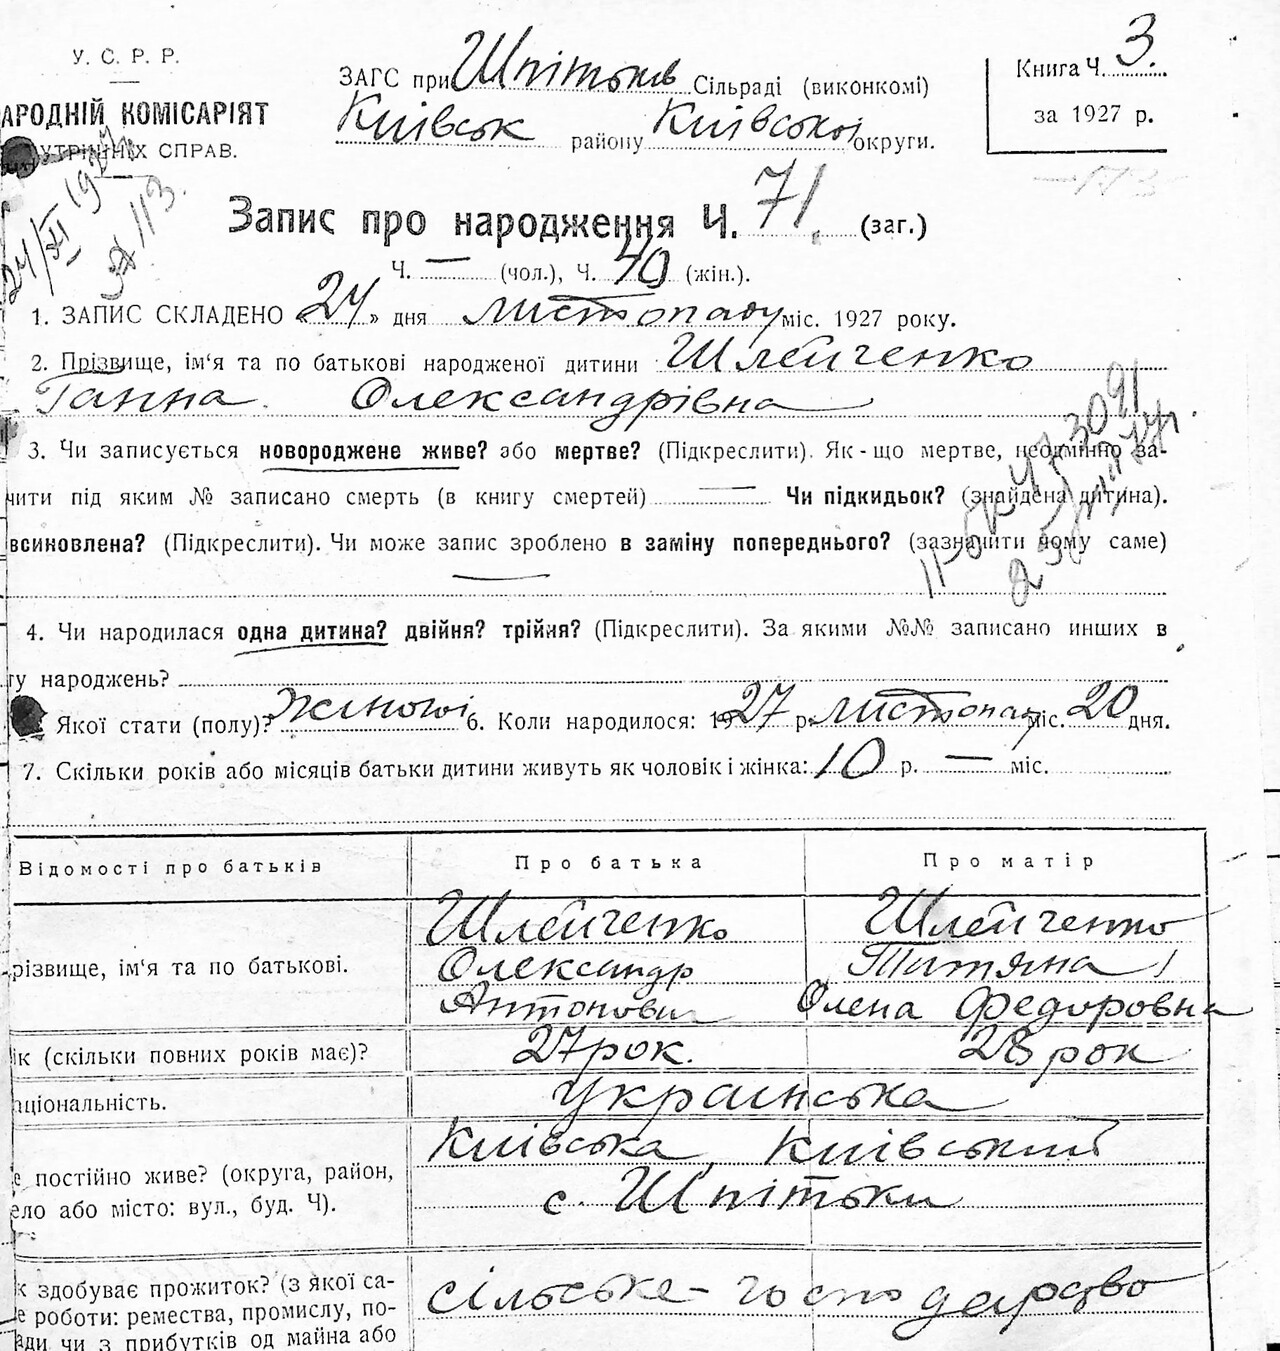 У. С. Р. Р.
АРОДНІЙ КОМІСАРІЯТ
УТРІШНІХ СПРАВ.
ЗАГС при Шпітьків Сільраді (виконкомі)
Київськ району Київської округи.
Книга Ч. 3.
за 1927 р.
113.
Запис про народження Ч. 71. (заг.)
Ч. — (чол.), Ч. 40 (жін.).
1. ЗАПИС СКЛАДЕНО «24» дня листопаду міс. 1927 року.
2. Прізвище, ім'я та по батькові народженої дитини Шлейченко
Ганна Олександрівна
3. Чи записується новороджене живе? або мертве? (Підкреслити). Як-що мертве, неодмінно за-
чити під яким № записано смерть (в книгу смертей) — Чи підкидьок? (знайдена дитина).
всиновлена? (Підкреслити). Чи може запис зроблено в заміну попереднього? (зазначити чому саме)
—
4. Чи народилася одна дитина? двійня? трійня? (Підкреслити). За якими №№ записано инших в
гу народжень?
Якої стати (полу)? Жіночої 6. Коли народилося: 1927 р. листопад міс. 20 дня.
7. Скільки років або місяців батьки дитини живуть як чоловік і жінка: 10 р. — міс.
Відомості про батьків Про батька Про матір
різвище, ім'я та по батькові.
Шлейченко Шлейченко
Олександр Татяна
Антонович Олена Федоровна
ік (скільки повних років має)? 27 рок. 28 рок
аціональність. украінська
е постійно живе? (округа, район,
ело або місто: вул., буд. Ч).
Київська Київський
с. Шпітьки
к здобуває прожиток? (з якої са-
е роботи: ремества, промислу, по-
ади чи з прибутків од майна або
сільське-господарство